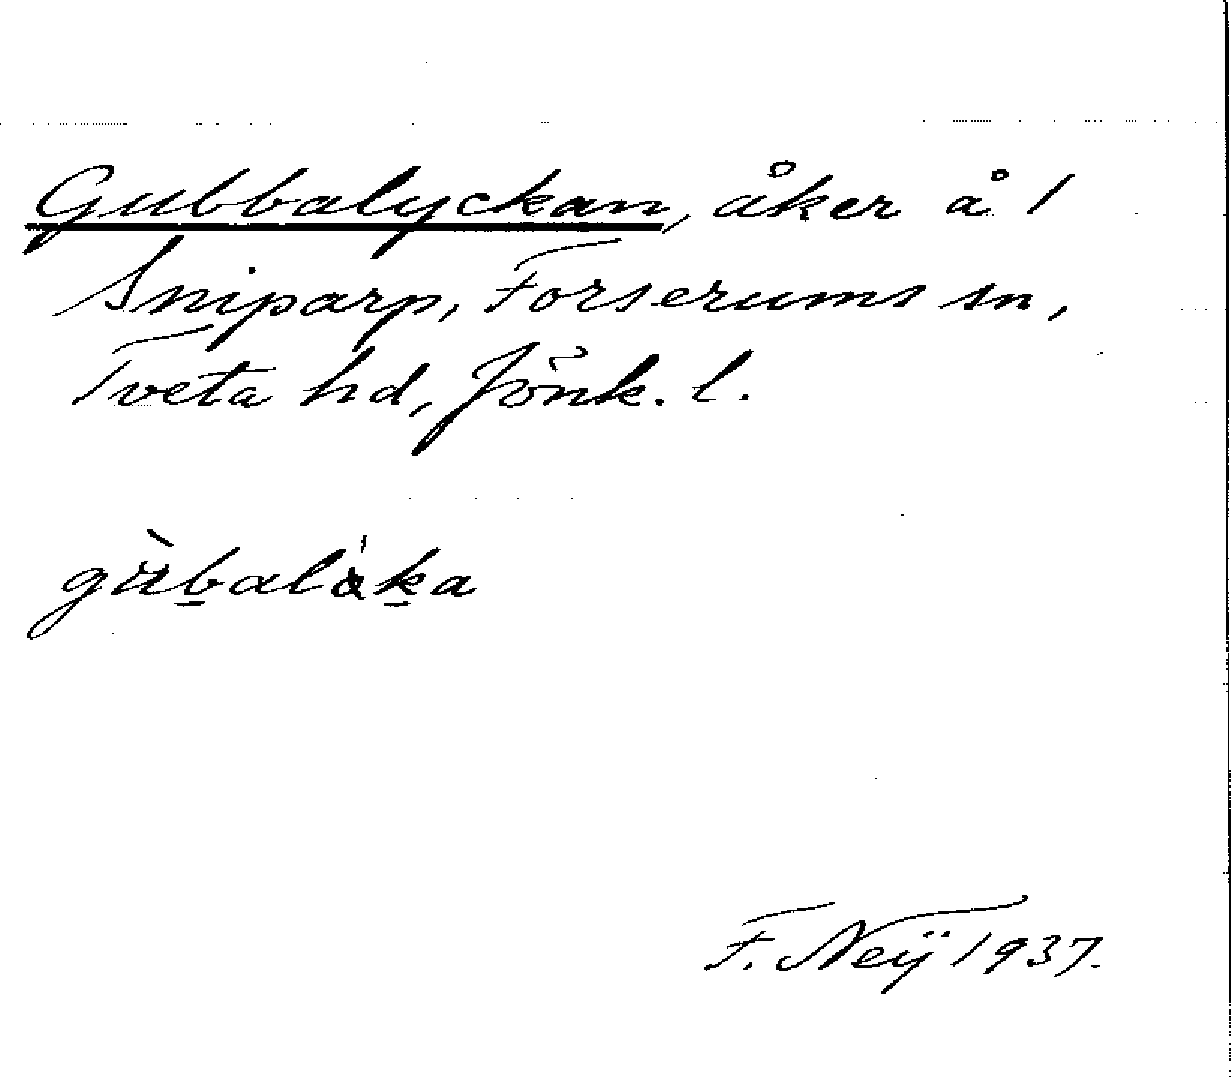 Gubbalyckan, åker å 1
Sniparp, Forserums sn,
Tveta hd, Jönk. l.
F. Neÿ 1937.